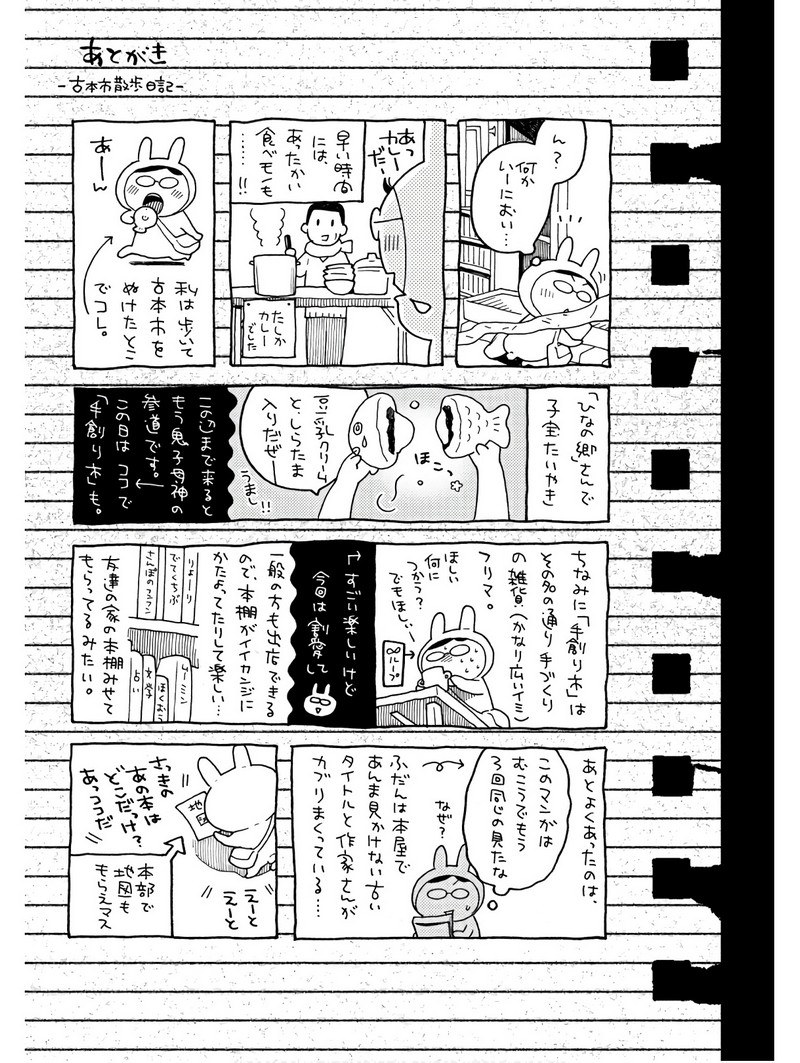 あとがき
-古本市散歩日記-
ん?
何か
いーにおい…
あっ
カレー
だ!
早い時間
には、
あったかい
食べモノも
……!!
たしか
カレー
でした
あーん
私は歩いて
古本市を
ぬけたとこ
でコレ。
「ひなの郷」さんで
子宝たいやき
ほこっ
豆乳クリーム
としらたま
入りだぜー
うまし!!
このへまで来ると
もう鬼子母神の
参道です。
この日はココで
「手創り市」も。
ちなみに「手創り市」は
その名の通り手づくり
の雑貨(かなり広いイミ)
フリマ。
ほしい
何に
つかう?
でもほしい…
∞ループ
すごい楽しいけど
今回は割愛して
一般の方も出店できる
ので、本棚がイイカンジに
かたよってたりして楽しい…
友達の家の本棚みせて
もらってるみたい。
りょーり
でてくちぶ
さんぽのフフン
ムーミン
ほくおう
文学
占い
あとよくあったのは、
このマンガは
むこうでもう
3回同じの見たな
なぜ?
ふだんは本屋で
あんま見かけない古い
タイトルと作家さんが
カブりまくっている……
さっきの
あの本は
どこだっけ?
あっココだ
地図
えーと
えーと
本部で
地図も
もらえマス